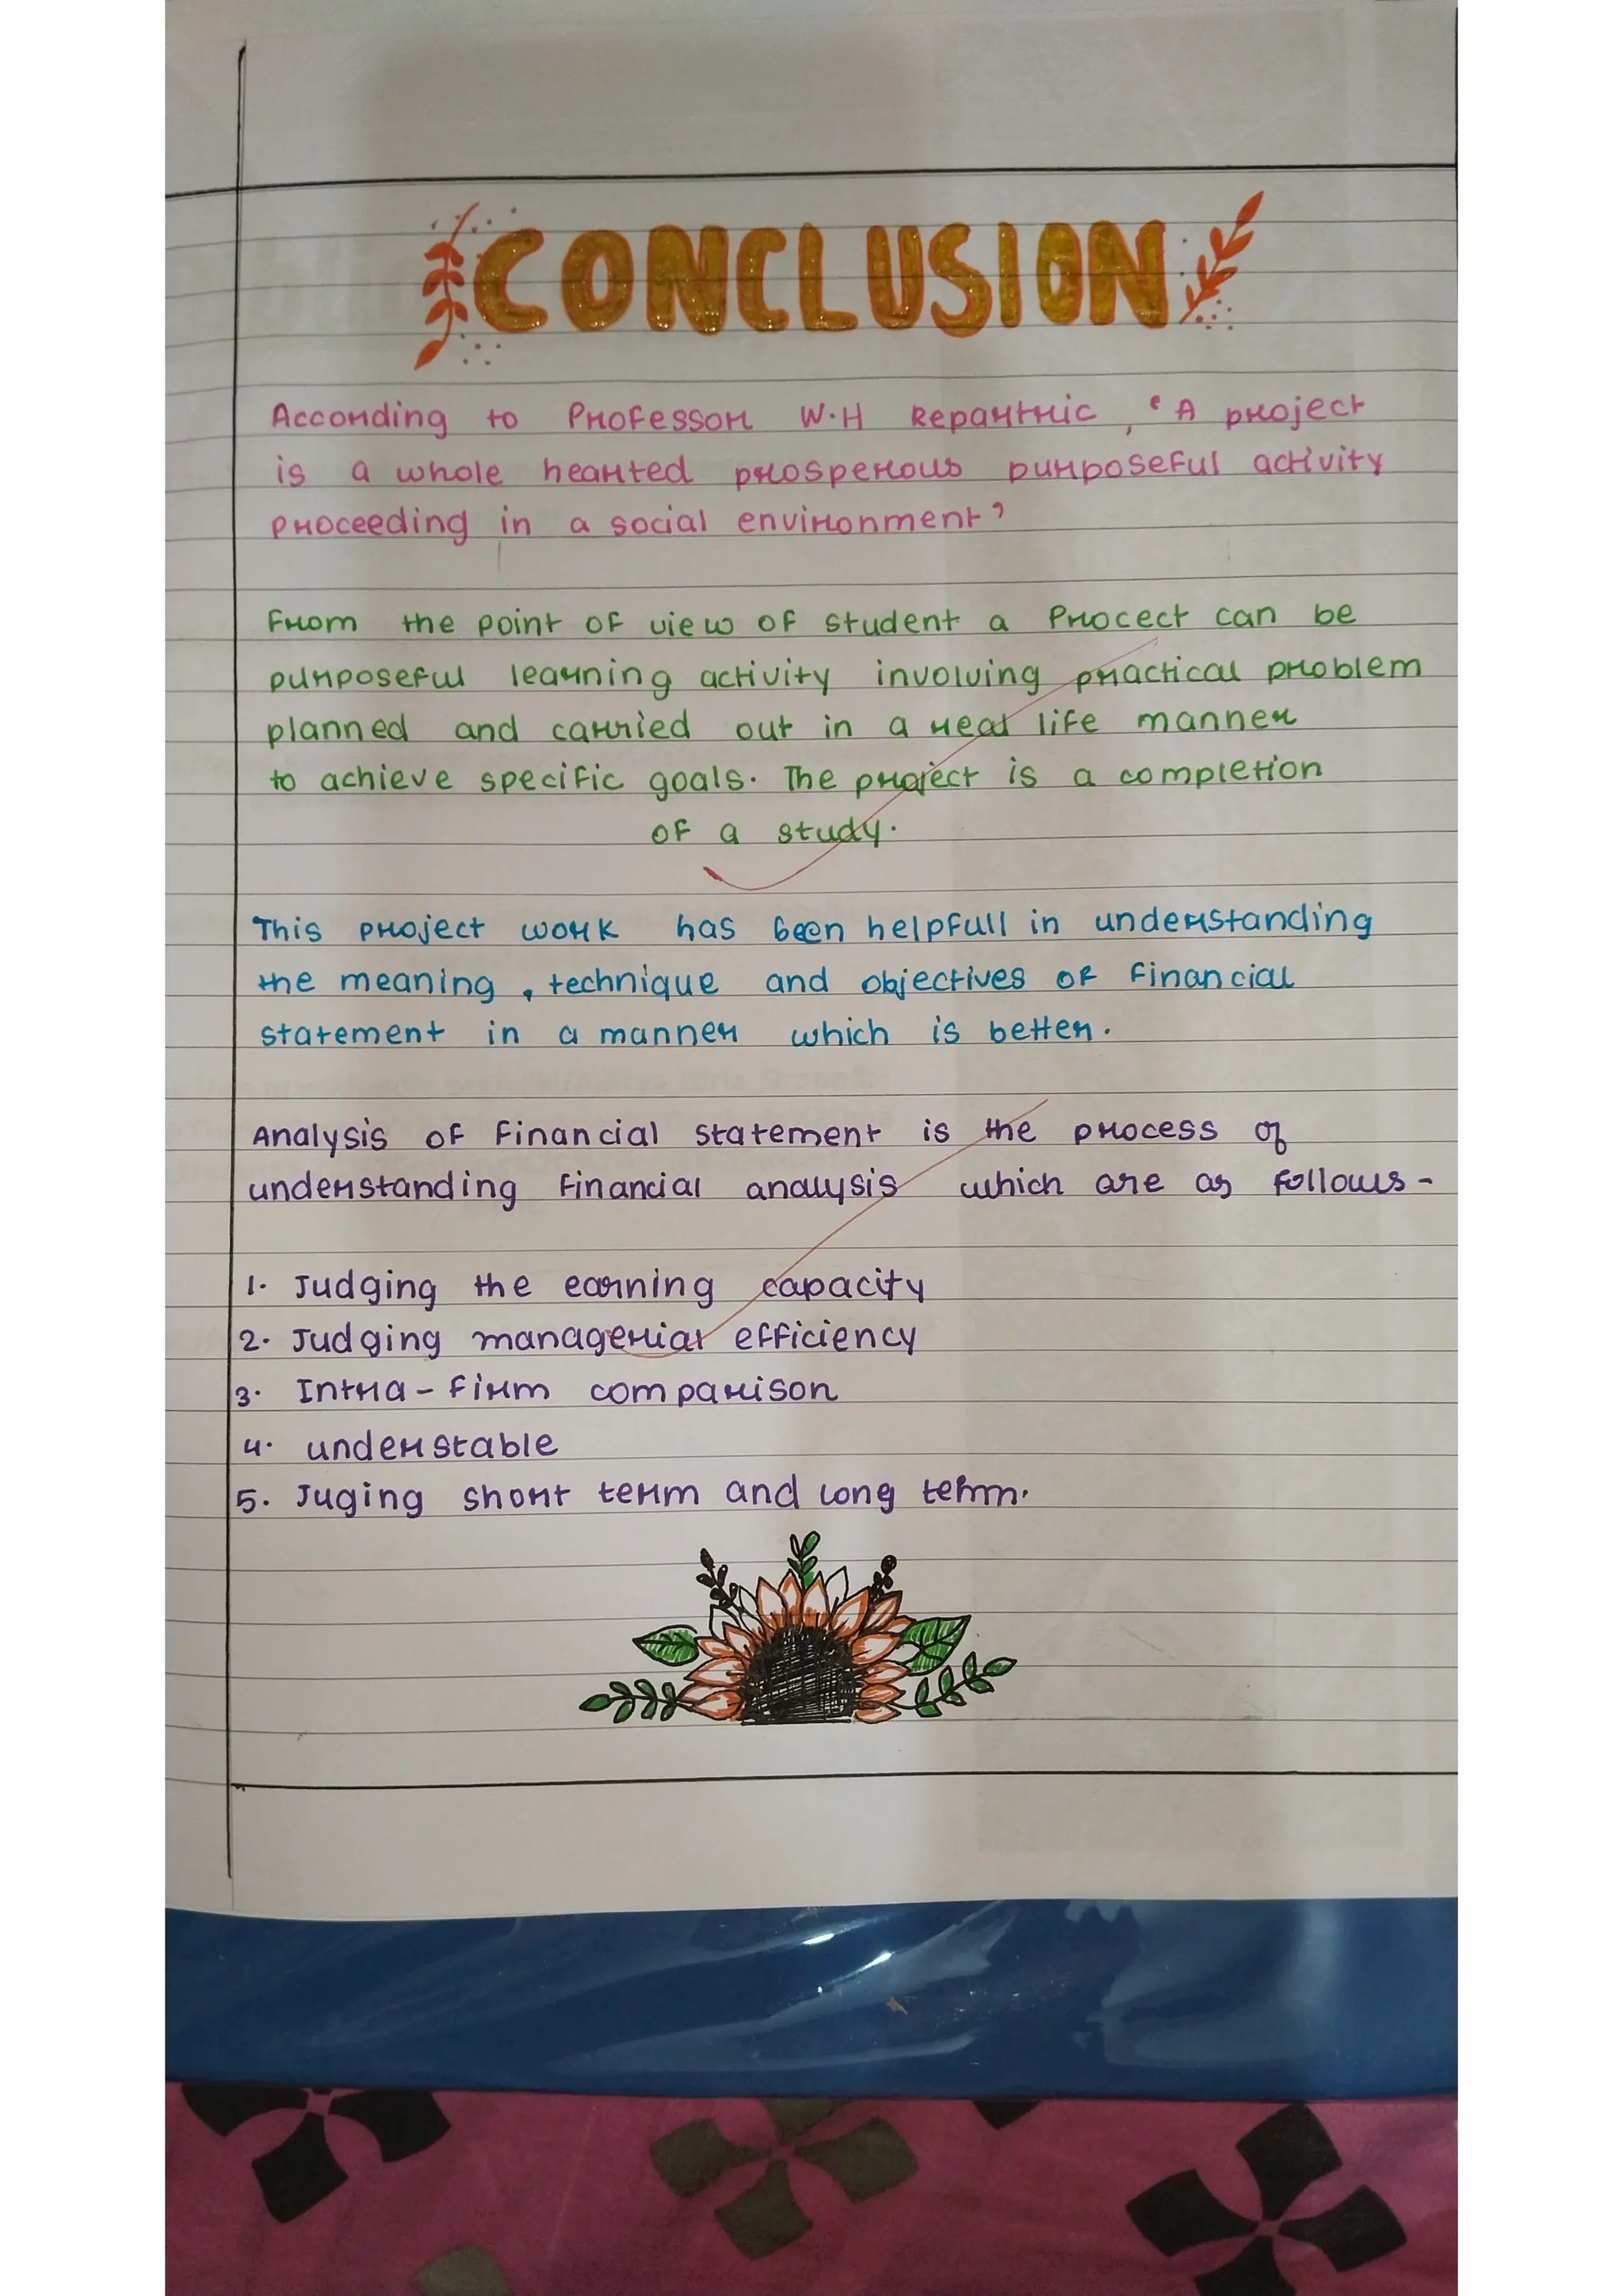 CONCLUSION
According to Professor W.H Reparthric, ‘A project
is a whole hearted prosperous purposeful activity
proceeding in a social environment’
From the point of view of student a Procect can be
purposeful learning activity involving practical problem
planned and carried out in a real life manner
to achieve specific goals. The project is a completion
of a study.
This project work has been helpfull in understanding
the meaning, technique and objectives of Financial
statement in a manner which is better.
Analysis of Financial statement is the process of
understanding Financial analysis which are as follows-
1. Judging the earning capacity
2. Judging managerial efficiency
3. Intra-Firm comparison
4. understable
5. Juging short term and long term.